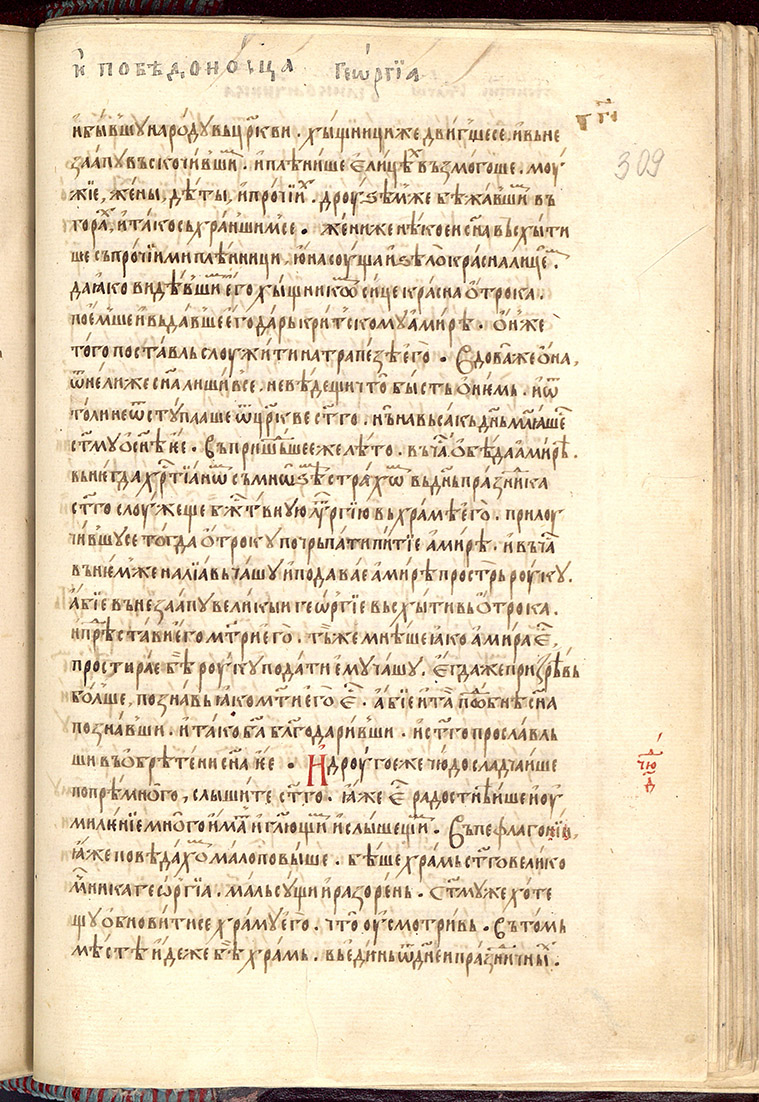 и҆ побѣдоно́сца Геѡ́ргїа
309
и҆бы́вшу наро́ду въцр҃кви . хы́щници же двигшесе и҆въне
заапу въскочи́вши . и҆плѣни́ше є҆ли́цѣхъ възмогоше . моу
жїе , жены , дѣты , и҆про́чїи . дроуѕѣм же бѣжа́вшим въ
горахъ , и҆та́ко съхраншимсе . жени же нѣкоеи сн҃а въсхы́ти
ше съпро́чїими плѣнници , ю҆на соу́ща и҆ѕѣло̀ красна лицем
да ꙗ҆ко ви́дѣвшим є҆го̀ хы́щникѡм си́це красна ѻ҆трока .
пое́мше и҆въда́вше є҆го̀ да́рь критскому амирѣ . ѻ҆н же
того̀ поставль слоужи́ти на трапе́зѣ є҆го̀ . Вдова́ же ѻ҆на ,
ѿне́лиже сн҃а лиши́ всe . невѣ́дещи что̀ бы́сть ѻ҆ нѥмь . и҆ѿ
то́ли не ѿступлаше ѿ цр҃кве ст҃го . нъ на вьсакъ дн҃ь млꙗше
ст҃му ѻ҆ сн҃ѣ ѥе . Въ приш́ьшее же лѣто . въ ча́с ѻ҆бѣда амирѣ .
вънегда хрⷭ҇тїаниѡм съ мнѡѕѣм стра́хѡм въ дн҃ь пра́здника
ст҃го слоу́жеще бж҃ствьную лѵргїю въ хра́мѣ є҆го̀ . прилоу
чи́вшусе тогда ѻ҆троку почрьпати пи́тїе амирѣ . и҆ въ ча́с
въ ньѥмже налїавь ча́шу и҆подава́е амирѣ простръ роуку .
а҆бїе вънезаапу вели́кыи геѡ́ргїе въсхы́ти ѻ҆трока .
и҆прѣ́стави є҆го мт҃ри є҆го̀ . тъ́ же мнѣше ꙗ҆ко амира є҆ⷭ҇ ,
прости́рае бѣ роуку пода́ти є҆му ча́шу . є҆гда́ же призрѣвь
бо́лше , позна́вь ꙗ҆ко мт҃и є҆го̀ є҆ⷭ҇ . а҆бїе и҆та̀ подобнѣ сн҃а
позна́вши . и҆та́ко бг҃а благодари́вши . и҆ст҃го прославль
ши въ ѻ҆брѣ́тени сн҃а ѥе . И҆ дроу́гое же чю́до сладча́ише
попрѣмно́го , слы́шите ст҃го . ꙗ҆же є҆ⷭ҇ радостнѣи́ше и҆ оу
миле́нїе мно́го и҆мат и҆ гл҃ющим и҆ слы́шещим . Въ пефлагонїи ,
ꙗ҆же повѣ́дахом ма́ло повы́ше . бѣ́ше хра́мь ст҃го вели́ко
мⷱ҇ника геѡ́ргїа . ма́ль сущи и҆ разоре́нь . Ст҃му же хоте
щу ѻ҆бнови́тисе храму є҆го̀ . что̀ оу҆смотри́вь . Въ то́мь
мѣ́стѣ и҆деже бѣ хра́мь . въ еди́нь ѿ дн҃е пра́здничных .
чю́д